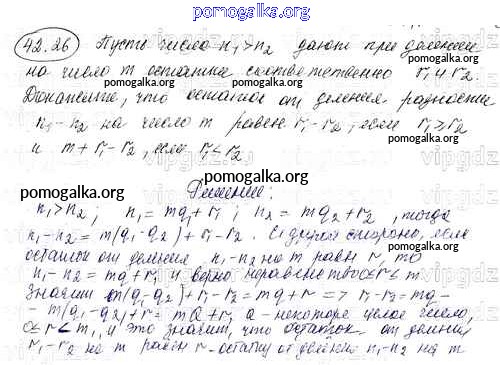 pomogalka.org
42.26 Пусть числа n₁>n₂ дают при делении
на число m остатки соответственно r₁ и r₂.
pomogalka.org pomogalka.org
Докажите, что остаток от деления разности
n₁-n₂ на число m равен r₁-r₂, если r₁≥r₂
и m+r₁-r₂, если r₁<r₂
pomogalka.org
Решение:
pomogalka.org
n₁>n₂; n₁=mq₁+r₁; n₂=mq₂+r₂, тогда
n₁-n₂=m(q₁-q₂)+r₁-r₂. С другой стороны, если
остаток от деления n₁-n₂ на m равен r, то
n₁-n₂=mq+r, и верно неравенство 0≤r<m
pomogalka.org
значит m(q₁-q₂)+r₁-r₂=mq+r => r₁-r₂=mq-
-m(q₁-q₂)+r=mQ+r, Q - некоторое целое число,
0≤r<m, и это значит, что остаток от деления
r₁-r₂ на m равен r - остатку от деления n₁-n₂ на m
pomogalka.org